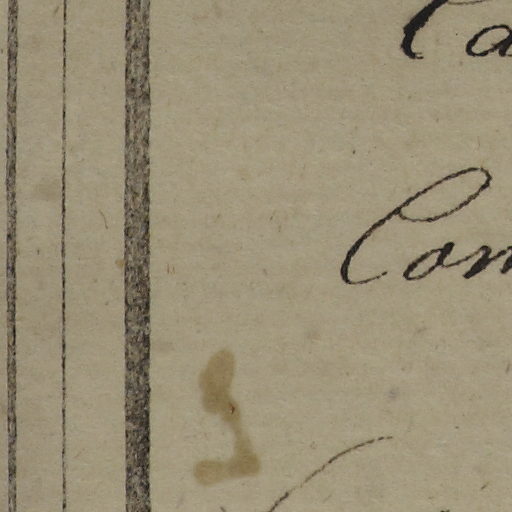 Ca
Com